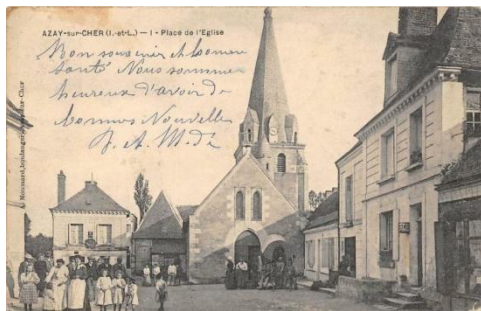 AZAY-sur-CHER (I.-et-L.) — 1 - Place de l'Eglise
Bon souvenir et bonne
santé Nous sommes
heureux d'avoir de
bonnes Nouvelles